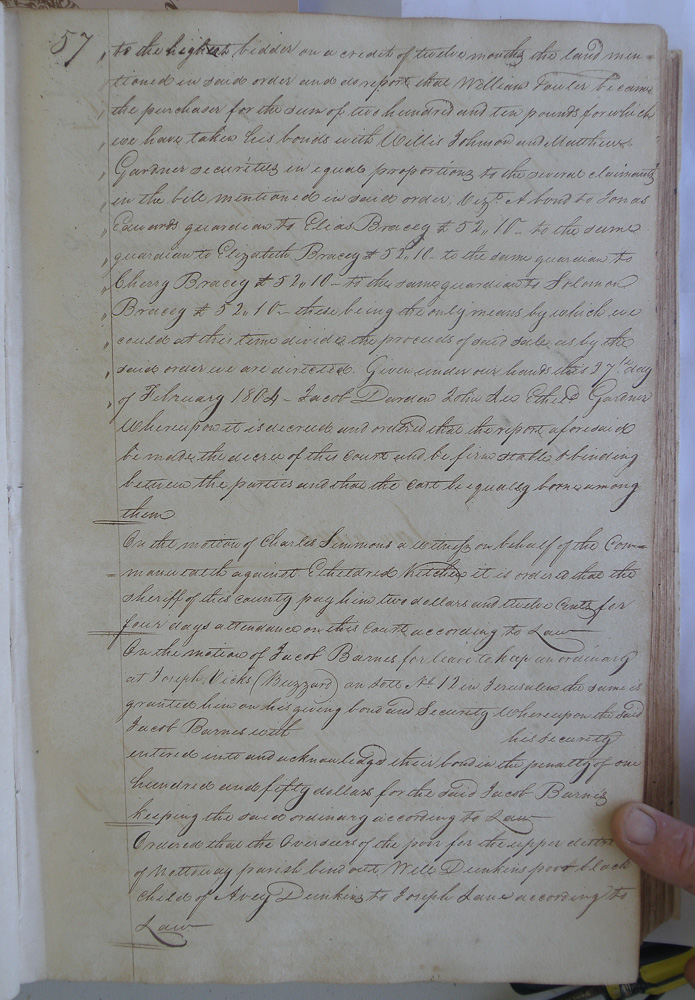 57
to the highest bidder on a credit of twelve months the land men=
tioned in said order and do report that William Fowler became
the purchaser for the sum of two hundred and ten pounds for which
we have taken his bonds with Willis Johnson and Matthew
Gardner securities in equal proportions to the several claimants
in the bill mentioned in said order. Vizt. A bond to Jonas
Edwards guardian to Elias Bracey £52,,10- to the same
guardian to Elizabeth Bracey £52,,10- to the same guardian to
Cherry Bracey £52,,10- to the same guardian to Solomon
Bracey £52,,10- these being the only means by which we
could at this time divide the proceeds of said sale as by the
said order we are directed. Given under our hands this 27th day
of February 1804 - Jacob Darden John Lee Etheld Gardner
Whereupon it is decreed and ordered that the report aforesaid
be made the decree of this Court and be firm stable & binding
between the parties and that the cost be equally borne among
them
On the motion of Charles Simmons a witness on behalf of the Com=
monwealth against Etheldred Kitchen it is ordered that the
sheriff of this county pay him two dollars and twelve Cents for
four days attendance on this Court according to Law
On the motion of Jacob Barnes for leave to keep an ordinary
at Joseph Vicks (Buzzard) on Lott No 12 in Jerusalem the same is
granted him on his giving bond and Security Whereupon the said
Jacob Barnes with his security
entered into and acknowledged their bond in the penalty of one
hundred and fifty dollars for the said Jacob Barnes
keeping the said ordinary according to Law
Ordered that the Overseers of the poor for the upper distr
of Nottoway parish bind out Will Dunkins poor black
child of Avey Dunkins to Joseph Lane according to
Law